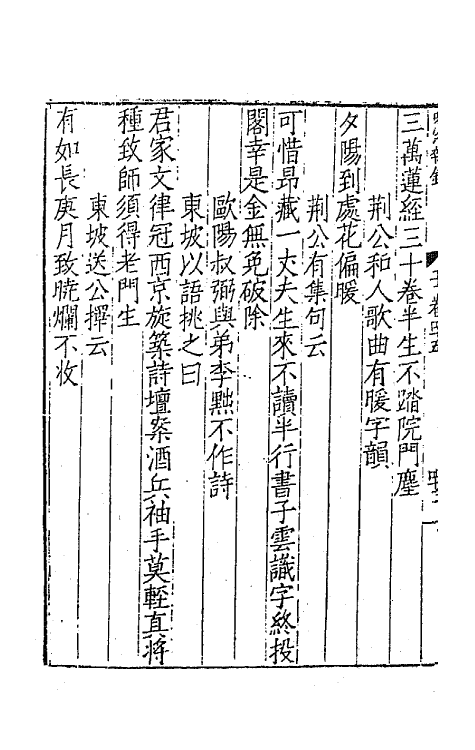 三萬蓮經三十卷半生不踏院門塵
荆公和人歌曲有暖字韻
夕陽到處花偏暖
荆公有集句云
可惜昻藏一丈夫生來不讀半行書子雲識字終投
閣幸是金無免破除
歐陽叔弼與弟季黙不作詩
東坡以語挑之曰
君家文律冠西京旋築詩壇案酒兵袖手莫輕真將
種致師須得老門生
東坡送公擇云
有如長庚月致曉爛不收